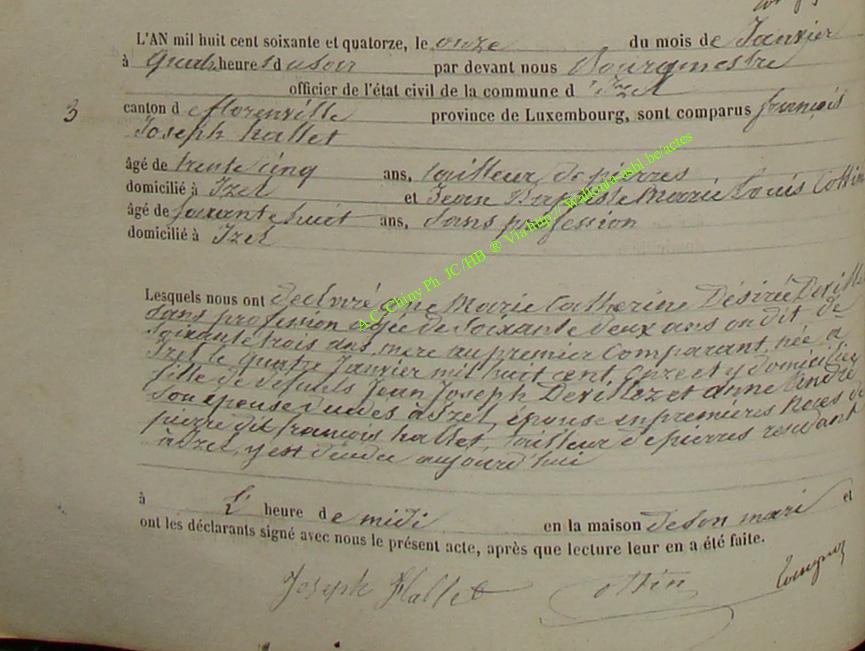 L'AN mil huit cent soixante et quatorze, le onze du mois de Janvier
à quatre heures du soir par devant nous Bourgmestre
officier de l'état civil de la commune d'Izel
3 canton de florenville province de Luxembourg, sont comparus françois
Joseph hallet
âgé de trente cinq ans, tailleur de pierres
domicilié à Izel et Jean Baptiste Marie Louis Cottin
âgé de soixante huit ans, sans profession
domicilié à Izel
Lesquels nous ont declaré que Marie Catherine Désirée Devillez
sans profession agée de soixante deux ans on dit de
soixante trois ans, mere au premier Comparant, née a
Izel le quatre Janvier mil huit cent onze et y domiciliée
fille de defunts Jean Joseph Devillez et anne André
son epouse décédés a Izel, épouse en premières noces de
pierre dit françois hallet, tailleur de pierres residant
a Izel, y est décédée aujourd'hui
à L' heure de midi en la maison de son mari et
ont les déclarants signé avec nous le présent acte, après que lecture leur en a été faite.
Joseph Hallet Cottin
A.C. Chiny Ph. JC /HB ® Via http:// Walkura.asbl.be/actes